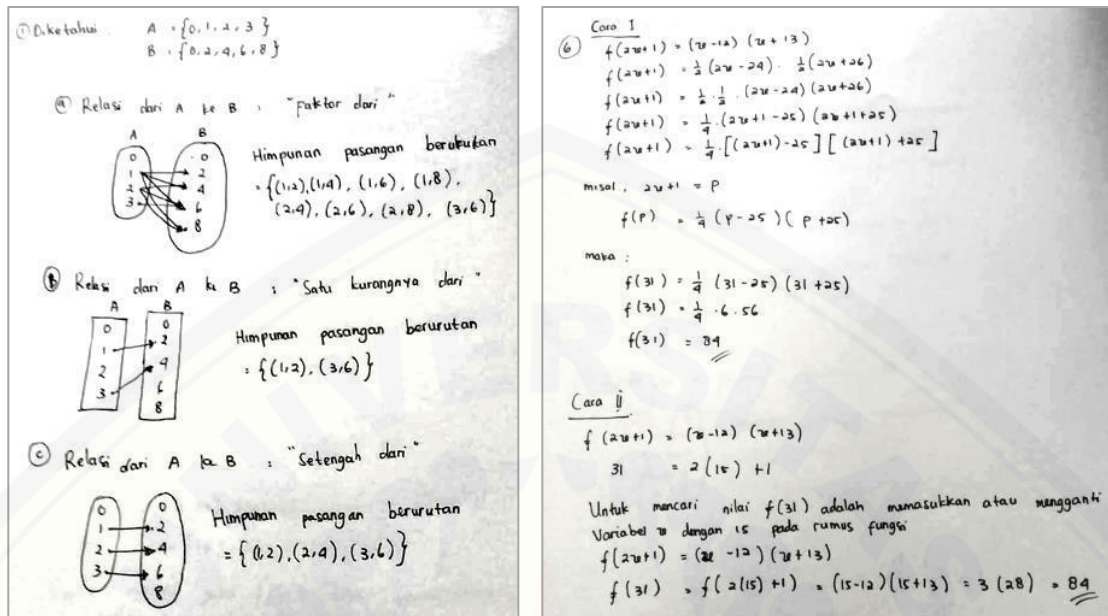 ① Diketahui A = {0, 1, 2, 3}
B = {0, 2, 4, 6, 8}
ⓐ Relasi dari A ke B : "Faktor dari"
A B
0 0
1 2
2 4
3 6
8
Himpunan pasangan berurutan
= {(1,2), (1,4), (1,6), (1,8),
(2,4), (2,6), (2,8), (3,6)}
ⓑ Relasi dari A ke B : "Satu kurangnya dari"
A B
0 0
1 2
2 4
3 6
8
Himpunan pasangan berurutan
: {(1,2), (3,6)}
ⓒ Relasi dari A ke B : "Setengah dari"
0 0
1 2
2 4
3 6
8
Himpunan pasangan berurutan
= {(1,2), (2,4), (3,6)}
⑥ Cara I
f(2x+1) = (x-12) (x+13)
f(2x+1) = ½ (2x-24) . ½ (2x+26)
f(2x+1) = ½ . ½ . (2x-24) (2x+26)
f(2x+1) = ¼ . (2x+1-25) (2x+1+25)
f(2x+1) = ¼ . [(2x+1)-25] [(2x+1)+25]
misal, 2x+1 = P
f(P) = ¼ (P-25) (P+25)
maka :
f(31) = ¼ (31-25) (31+25)
f(31) = ¼ . 6 . 56
f(31) = 84
Cara II
f(2x+1) = (x-12) (x+13)
31 = 2(15) + 1
Untuk mencari nilai f(31) adalah memasukkan atau mengganti
Variabel x dengan 15 pada rumus fungsi
f(2x+1) = (x-12) (x+13)
f(31) = f(2(15)+1) = (15-12) (15+13) = 3 (28) = 84